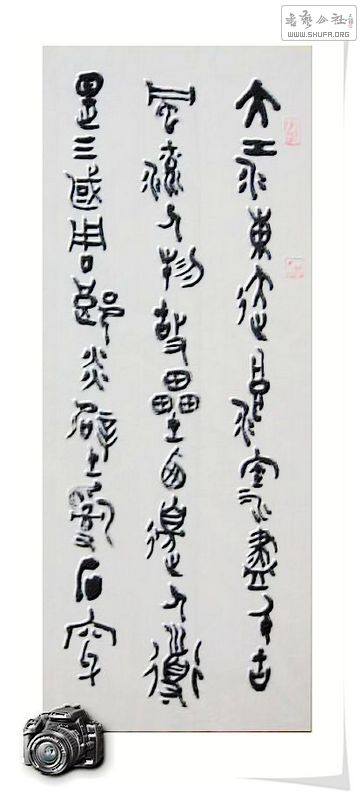 書藝公社
WWW.SHUFA.ORG
大江東去浪淘盡千古
風流人物故壘西邊人道
是三國周郎赤壁亂石穿